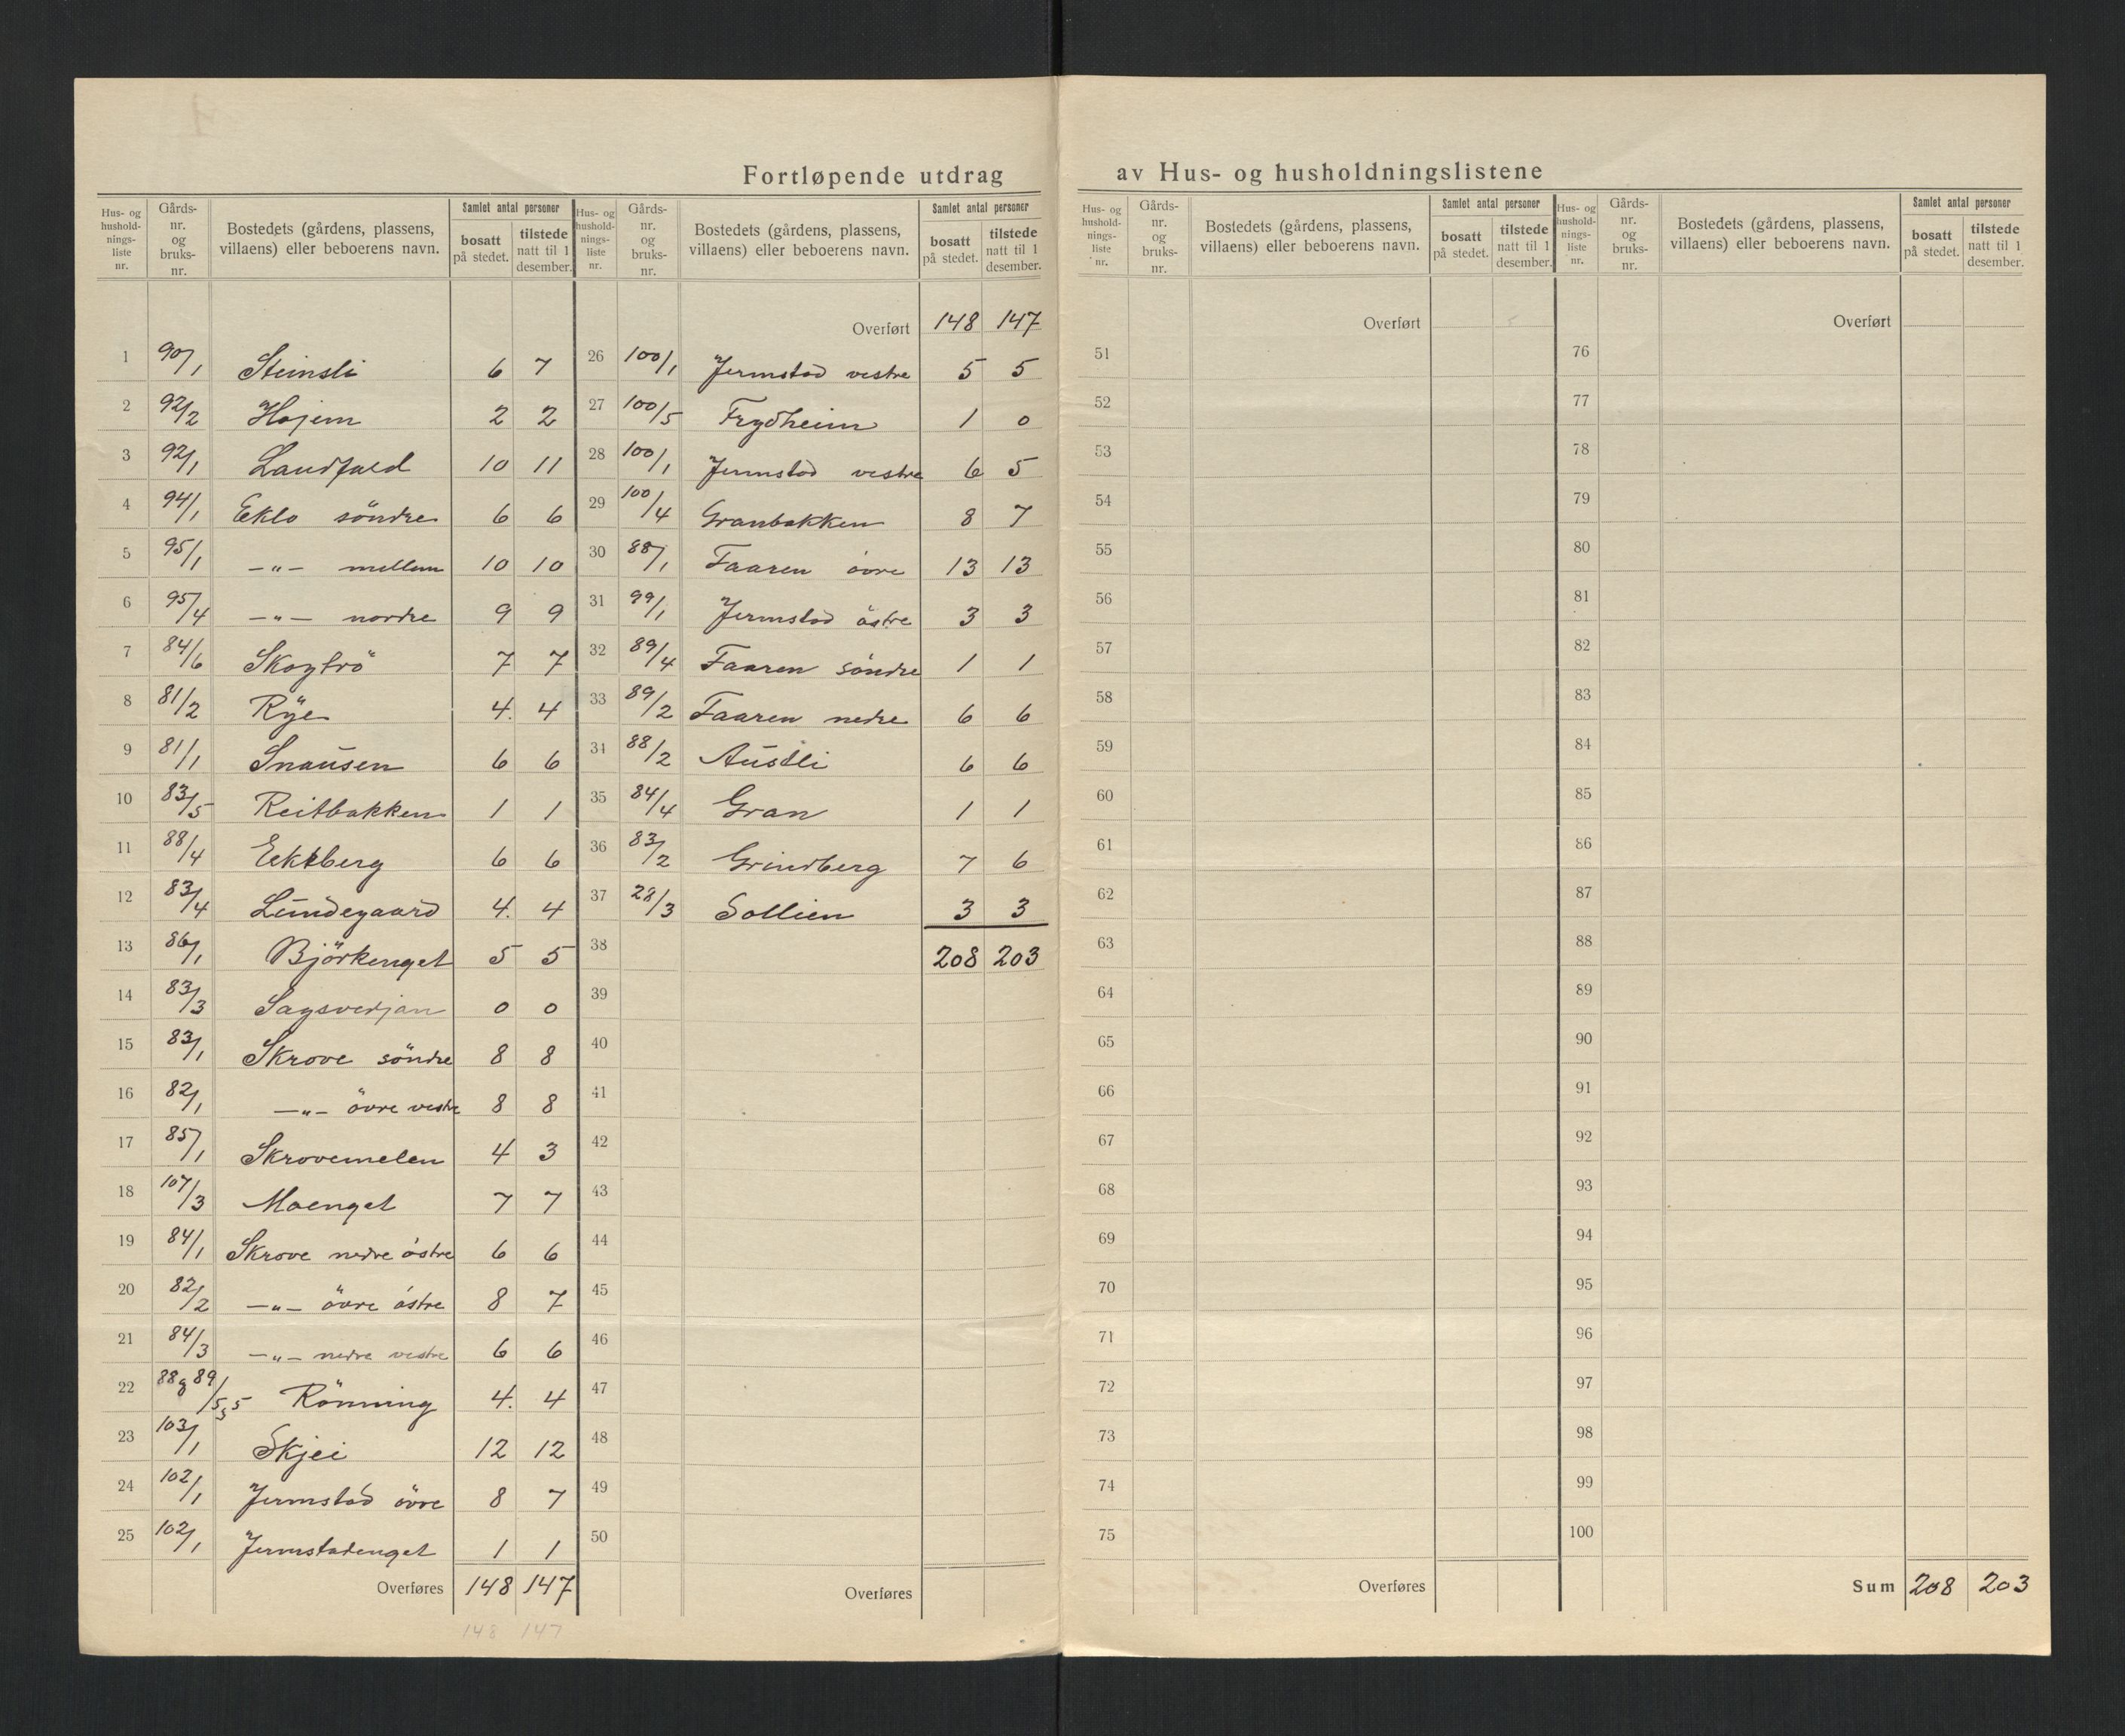 Fortløpende utdrag av Hus- og husholdningslistene
Hus- og hushold-nings-liste nr. Gårds-nr. og bruks-nr. Bostedets (gårdens, plassens, villaens) eller beboerens navn. Samlet antal personer bosatt på stedet. tilstede natt til 1 desember.
1 90/1 Steinsli 6 7
2 92/2 Hojem 2 2
3 92/1 Landfald 10 11
4 94/1 Eklo söndre 6 6
5 95/1 —„— mellem 10 10
6 95/4 —„— nordre 9 9
7 84/6 Skogtrö 7 7
8 81/2 Rye 4. 4
9 81/1 Snausen 6 6
10 83/5 Reitbakken 1 1
11 88/4 Eekberg 6 6
12 83/4 Lundegaard 4. 4
13 86/1 Björkenget 5 5
14 83/3 Sagsvedjan 0 0
15 83/1 Skrove söndre 8 8
16 82/1 —„— övre vestre 8 8
17 85/1 Skrovemelen 4 3
18 107/3 Moenget 7 7
19 84/1 Skrove nedre östre 6 6
20 82/2 —„— övre östre 8 7
21 84/3 —„— nedre vestre 6 6
22 88 & 89/5,5 Rönning 4. 4
23 103/1 Skjei 12 12
24 102/1 Jermstad övre 8 7
25 102/1 Jermstadenget 1 1
Overføres 148 147
148 147
Hus- og hushold-nings-liste nr. Gårds-nr. og bruks-nr. Bostedets (gårdens, plassens, villaens) eller beboerens navn. Samlet antal personer bosatt på stedet. tilstede natt til 1 desember.
Overført 148 147
26 100/1 Jermstad vestre 5 5
27 100/5 Frydheim 1 0
28 100/1 Jermstad vestre 6 5
29 100/4 Granbakken 8 7
30 88/1 Faaren övre 13 13
31 99/1 Jermstad östre 3 3
32 89/4 Faaren söndre 1 1
33 89/2 Faaren nedre 6 6
34 88/2 Austli 6 6
35 84/4 Gran 1 1
36 83/2 Grindberg 7 6
37 28/3 Sollien 3 3
38 208 203
39
40
41
42
43
44
45
46
47
48
49
50
Overføres
Hus- og hushold-nings-liste nr. Gårds-nr. og bruks-nr. Bostedets (gårdens, plassens, villaens) eller beboerens navn. Samlet antal personer bosatt på stedet. tilstede natt til 1 desember.
Overført
51
52
53
54
55
56
57
58
59
60
61
62
63
64
65
66
67
68
69
70
71
72
73
74
75
Overføres
Hus- og hushold-nings-liste nr. Gårds-nr. og bruks-nr. Bostedets (gårdens, plassens, villaens) eller beboerens navn. Samlet antal personer bosatt på stedet. tilstede natt til 1 desember.
Overført
76
77
78
79
80
81
82
83
84
85
86
87
88
89
90
91
92
93
94
95
96
97
98
99
100
Sum 208 203